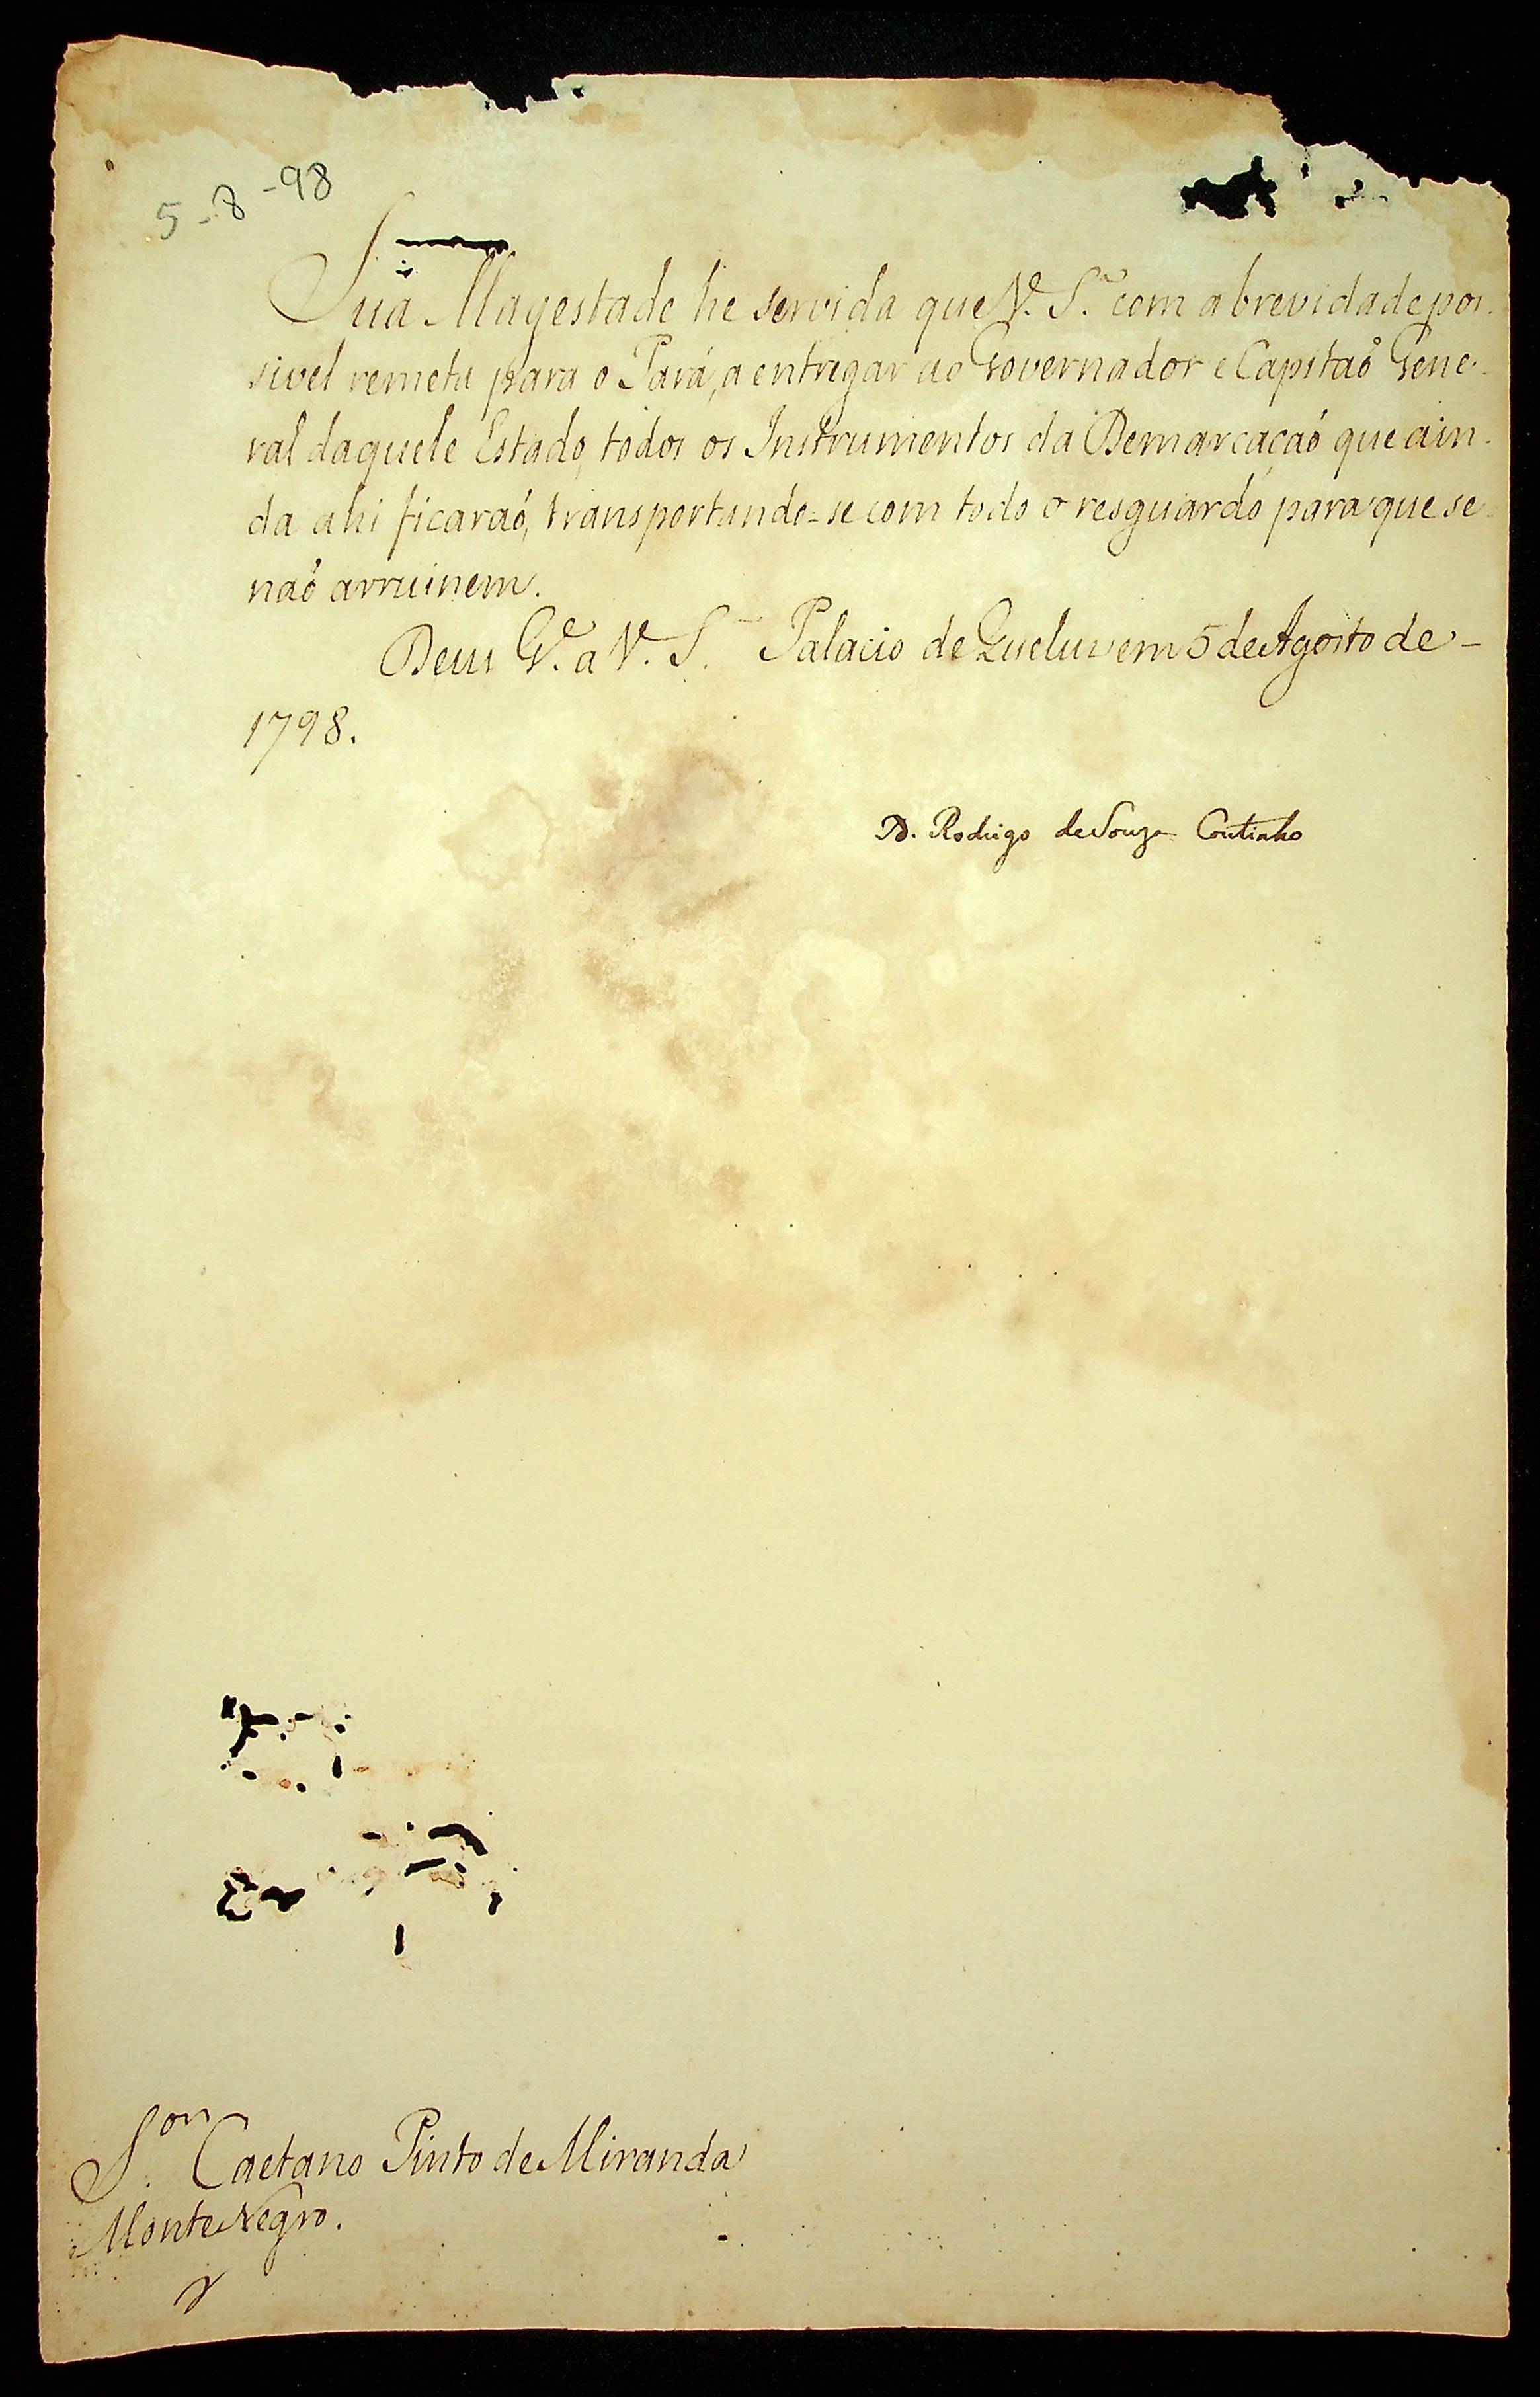 5-8-98
Sua Magestade he servida que V. S.ª com a brevidade pos-
sivel remeta para o Pará, a entregar ao Governador e Capitaõ Gene-
ral daquele Estado, todos os Instrumentos da Demarcaçaõ que ain-
da ahi ficaraõ, transportando-se com todo o resguardo para que se
naõ arruinem.
Deus G.e a V. S.ª Palacio de Queluz em 5 de Agosto de -
1798.
D. Rodrigo de Souza Coutinho
S.or Caetano Pinto de Miranda
Monte Negro.